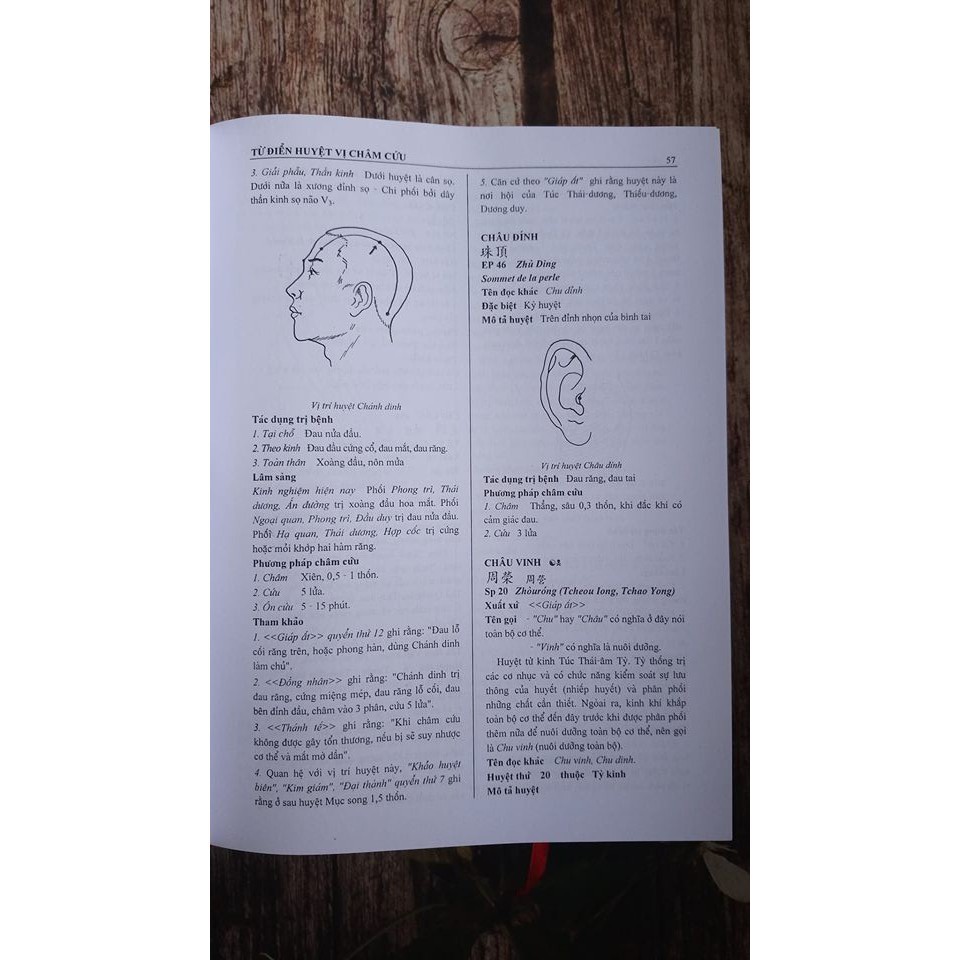 TỪ ĐIỂN HUYỆT VỊ CHÂM CỨU
57
3. Giải phẫu, Thần kinh Dưới huyệt là cân sọ.
Dưới nữa là xương đỉnh sọ - Chi phối bởi dây
thần kinh sọ não V3.
Vị trí huyệt Chánh dinh
Tác dụng trị bệnh
1. Tại chỗ Đau nửa đầu.
2. Theo kinh Đau đầu cứng cổ, đau mắt, đau răng.
3. Toàn thân Xoàng đầu, nôn mửa
Lâm sàng
Kinh nghiệm hiện nay Phối Phong trì, Thái
dương, Ấn đường trị xoàng đầu hoa mắt. Phối
Ngoại quan, Phong trì, Đầu duy trị đau nửa đầu.
Phối Hạ quan, Thái dương, Hợp cốc trị cứng
hoặc mỏi khớp hai hàm răng.
Phương pháp châm cứu
1. Châm Xiên, 0,5 - 1 thốn.
2. Cứu 5 lửa.
3. Ôn cứu 5 - 15 phút.
Tham khảo
1. <<Giáp ất>> quyển thứ 12 ghi rằng: "Đau lỗ
cối răng trên, hoặc phong hàn, dùng Chánh dinh
làm chủ".
2. <<Đồng nhân>> ghi rằng: "Chánh dinh trị
đau răng, cứng miệng mép, đau răng lỗ cối, đau
bên đỉnh đầu, châm vào 3 phân, cứu 5 lửa".
3. <<Thánh tế>> ghi rằng: "Khi châm cứu
không được gây tổn thương, nếu bị sẽ suy nhược
cơ thể và mắt mờ dần".
4. Quan hệ với vị trí huyệt này, "Khảo huyệt
biên", "Kim giám", "Đại thành" quyển thứ 7 ghi
rằng ở sau huyệt Mục song 1,5 thốn.
5. Căn cứ theo "Giáp ất" ghi rằng huyệt này là
nơi hội của Túc Thái-dương, Thiếu-dương,
Dương duy.
CHÂU ĐỈNH
珠頂
EP 46 Zhū Dǐng
Sommet de la perle
Tên đọc khác Chu đỉnh
Đặc biệt Kỳ huyệt
Mô tả huyệt Trên đỉnh nhọn của bình tai
Vị trí huyệt Châu đỉnh
Tác dụng trị bệnh Đau răng, đau tai
Phương pháp châm cứu
1. Châm Thẳng, sâu 0,3 thốn, khi đắc khí có
cảm giác đau.
2. Cứu 3 lửa
CHÂU VINH
周榮 周荣
Sp 20 Zhōuróng (Tcheou Iong, Tchao Yong)
Xuất xứ <<Giáp ất>>
Tên gọi - "Chu" hay "Châu" có nghĩa ở đây nói
toàn bộ cơ thể.
- "Vinh" có nghĩa là nuôi dưỡng.
Huyệt từ kinh Túc Thái-âm Tỳ. Tỳ thống trị
các cơ nhục và có chức năng kiểm soát sự lưu
thông của huyết (nhiếp huyết) và phân phối
những chất cần thiết. Ngòai ra, kinh khí khắp
toàn bộ cơ thể đến đây trước khi được phân phối
thêm nữa để nuôi dưỡng toàn bộ cơ thể, nên gọi
là Chu vinh (nuôi dưỡng toàn bộ).
Tên đọc khác Chu vinh, Chu dinh.
Huyệt thứ 20 thuộc Tỳ kinh
Mô tả huyệt